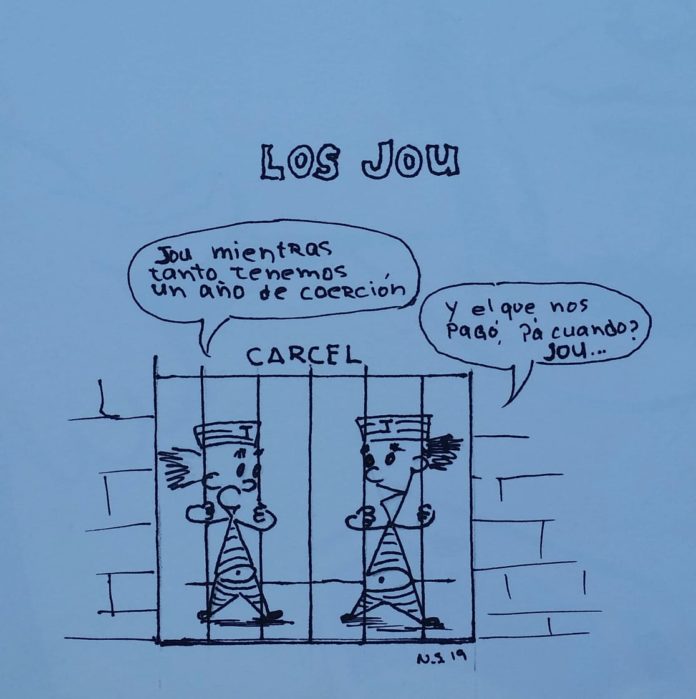 LOS JOU
Jou mientras
tanto, tenemos
un año de coerción
Y el que nos
PAGÓ, Pá cuando?
JOU...
CARCEL
I
I
N.S 19